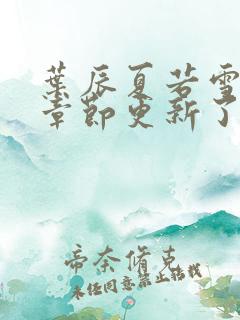 葉辰夏若雪
章節更新了
帝奈脩克
未经同意禁止转载